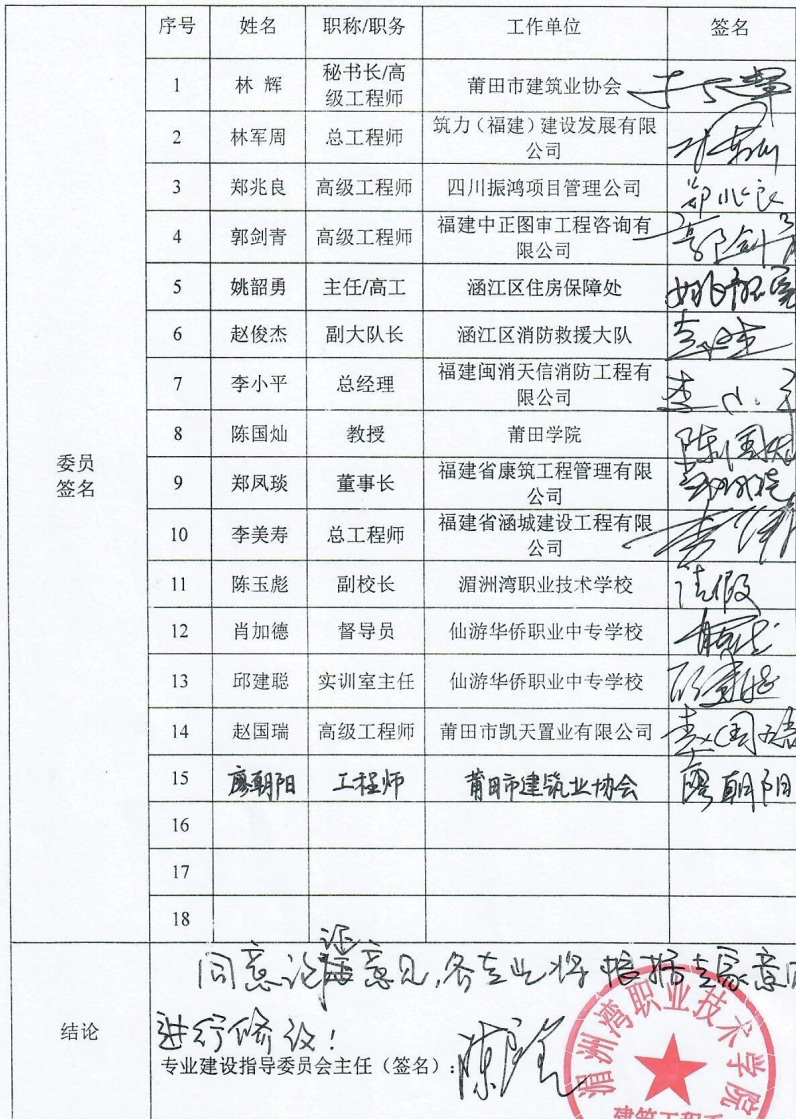 序号 姓名 职称/职务 工作单位 签名
1 林 辉 秘书长/高级工程师 莆田市建筑业协会
2 林军周 总工程师 筑力（福建）建设发展有限公司
3 郑兆良 高级工程师 四川振鸿项目管理公司 郑兆良
4 郭剑青 高级工程师 福建中正图审工程咨询有限公司 郭剑青
5 姚韶勇 主任/高工 涵江区住房保障处 姚韶勇
6 赵俊杰 副大队长 涵江区消防救援大队
7 李小平 总经理 福建闽消天信消防工程有限公司 李小平
8 陈国灿 教授 莆田学院 陈国灿
委员
签名
9 郑凤琰 董事长 福建省康筑工程管理有限公司
10 李美寿 总工程师 福建省涵城建设工程有限公司
11 陈玉彪 副校长 湄洲湾职业技术学校 请假
12 肖加德 督导员 仙游华侨职业中专学校
13 邱建聪 实训室主任 仙游华侨职业中专学校
14 赵国瑞 高级工程师 莆田市凯天置业有限公司 赵国瑞
15 廖朝阳 工程师 莆田市建筑业协会 廖朝阳
16
17
18
结论
同意论证意见,各专业将根据专家意见
进行修改!
专业建设指导委员会主任（签名）:
湄洲湾职业技术学院
建筑工程